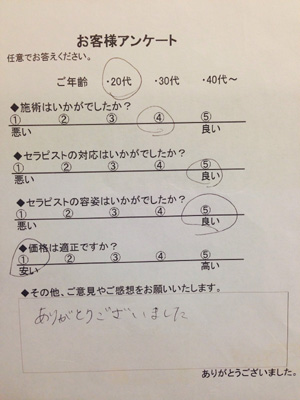 お客様アンケート
任意でお答えください。
ご年齢 ・20代 ・30代 ・40代～
◆施術はいかがでしたか？
① ② ③ ④ ⑤
悪い 良い
◆セラピストの対応はいかがでしたか？
① ② ③ ④ ⑤
悪い 良い
◆セラピストの容姿はいかがでしたか？
① ② ③ ④ ⑤
悪い 良い
◆価格は適正ですか？
① ② ③ ④ ⑤
安い 高い
◆その他、ご意見やご感想をお願いいたします。
ありがとうございました
ありがとうございました。